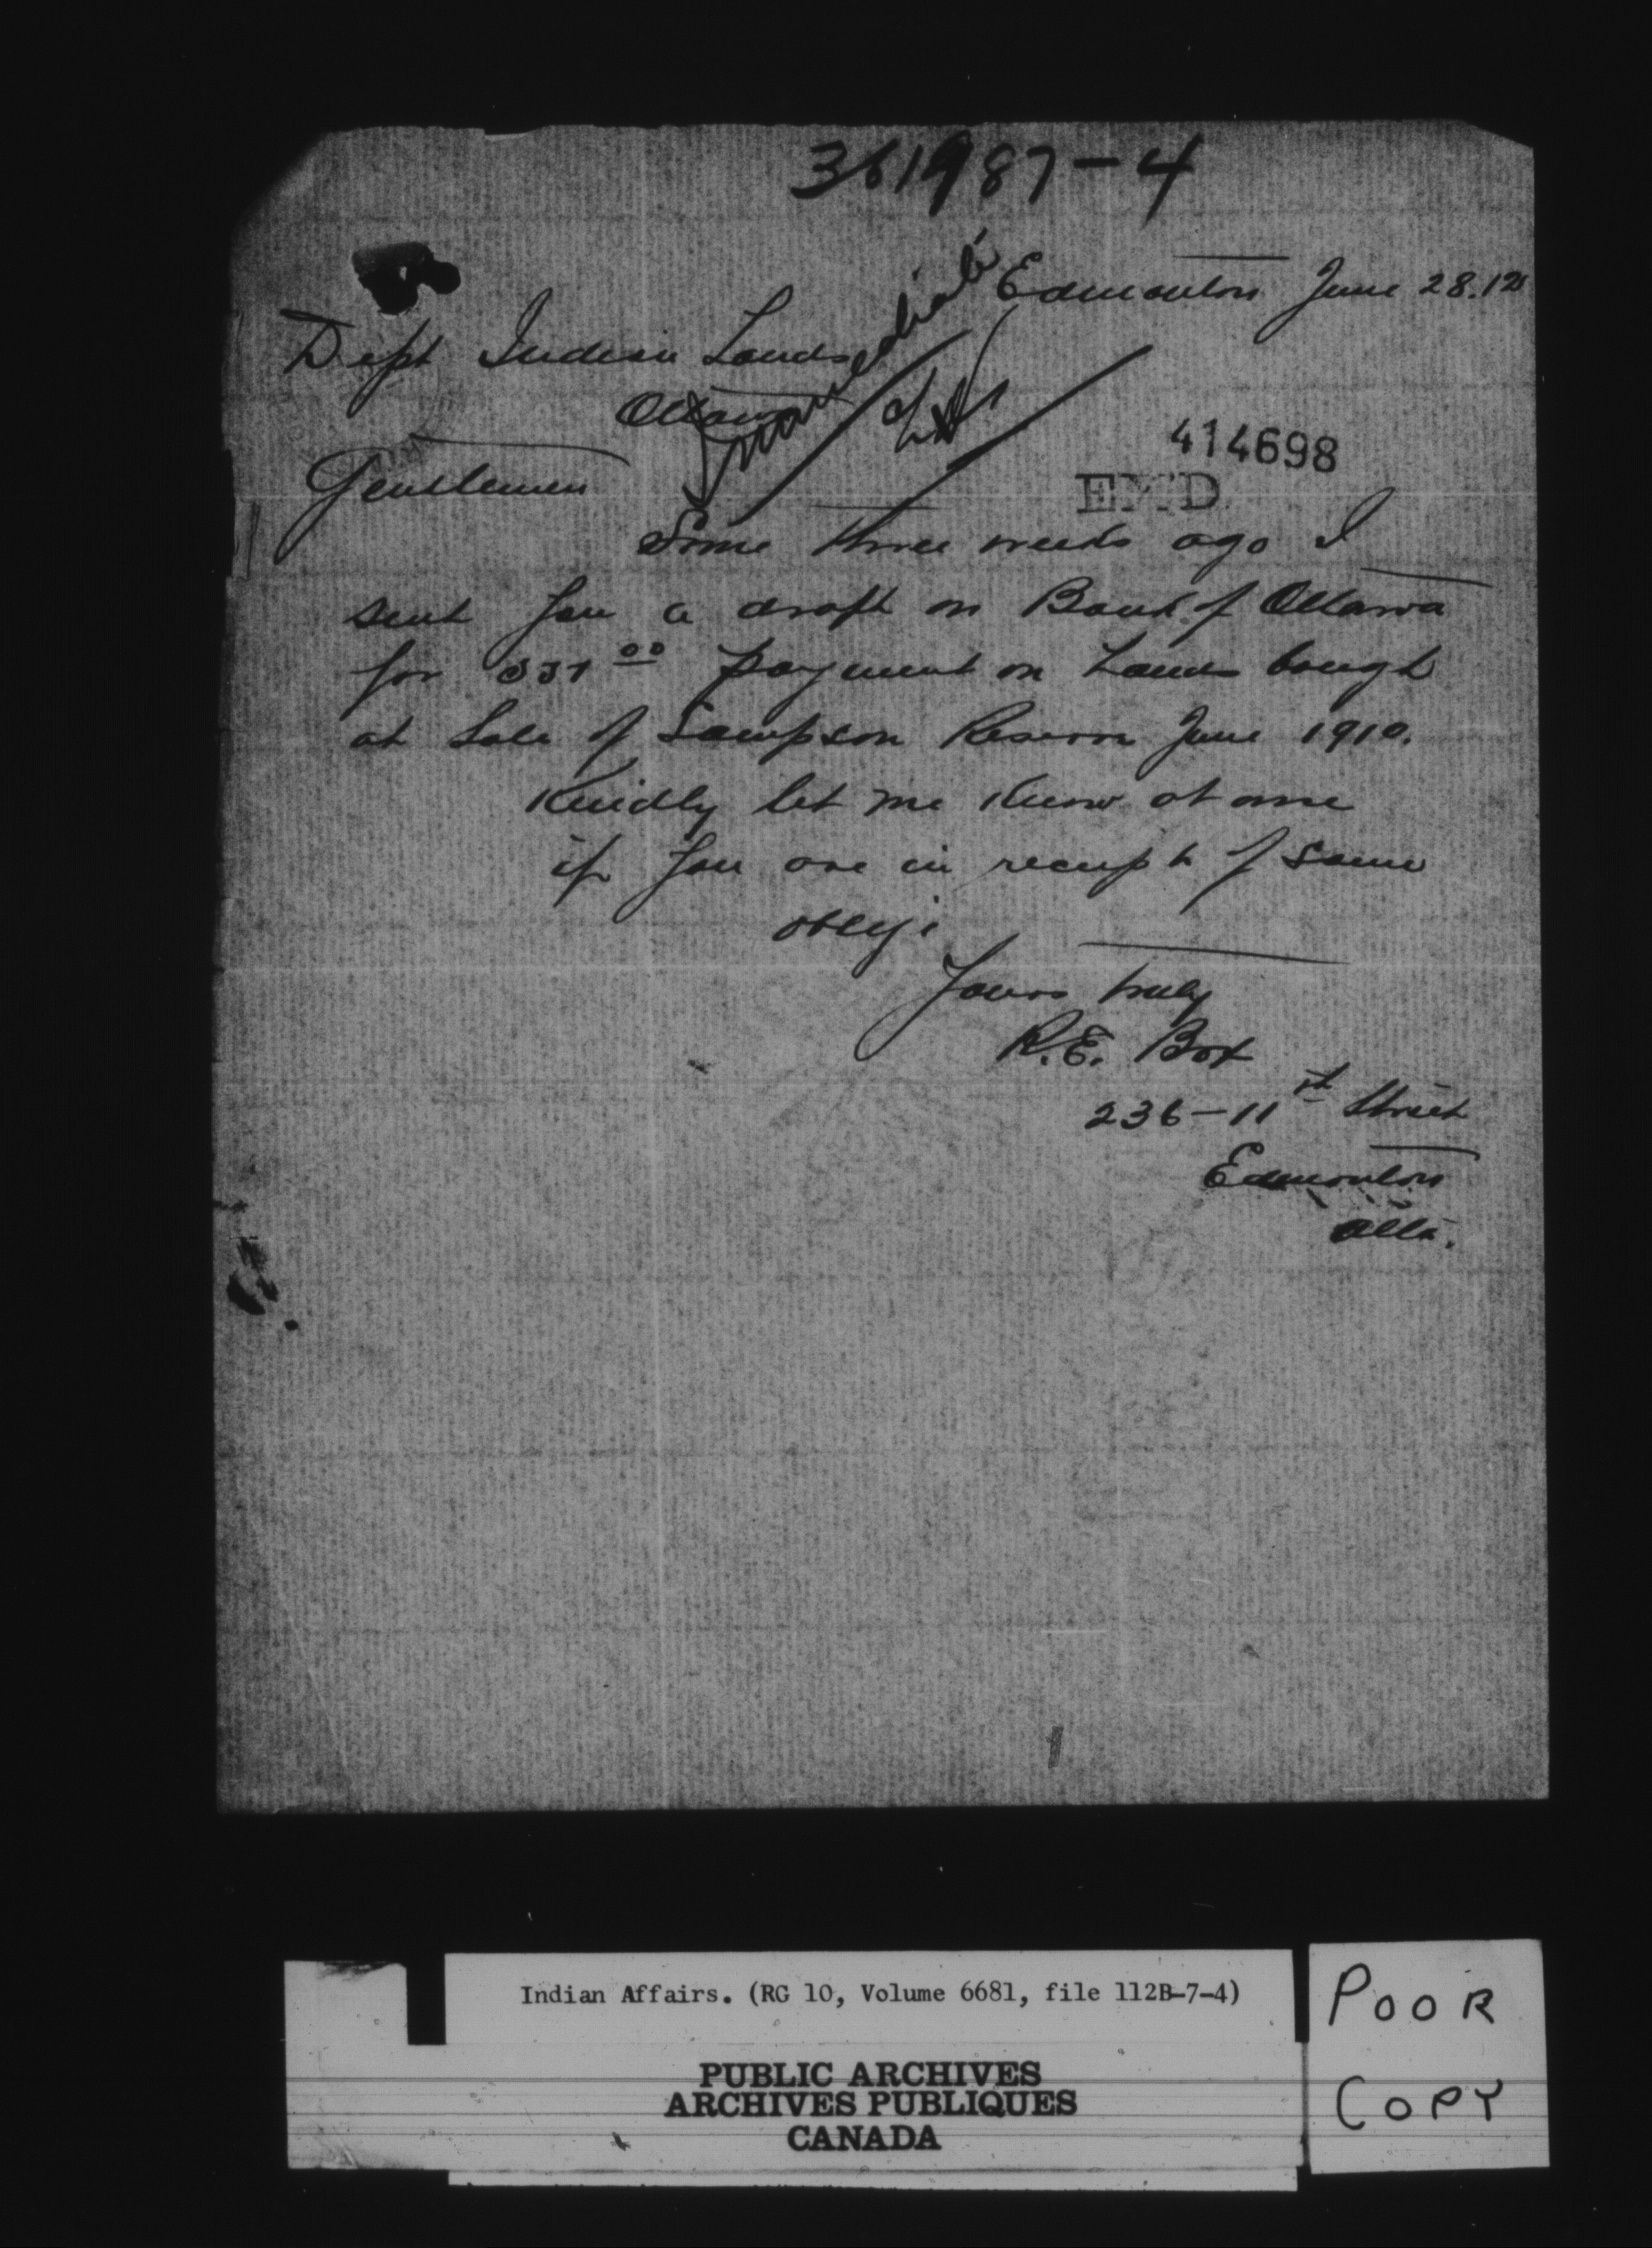 361987-4
Edmonton June 28.12
Dept Indian Lands
Ottawa
Immediate
414698
Gentlemen
Some three weeks ago I
sent you a draft on Bank of Ottawa
for 337 00 payment on Lands bought
at Sale of Sampson Reserve June 1910.
Kindly let me know at once
if you are in receipt of same
oblige
Yours truly
R.E. Box
236-11th Street
Edmonton
Alta.
Indian Affairs. (RG 10, Volume 6681, file 112B-7-4)
PUBLIC ARCHIVES
ARCHIVES PUBLIQUES
CANADA
POOR
COPY